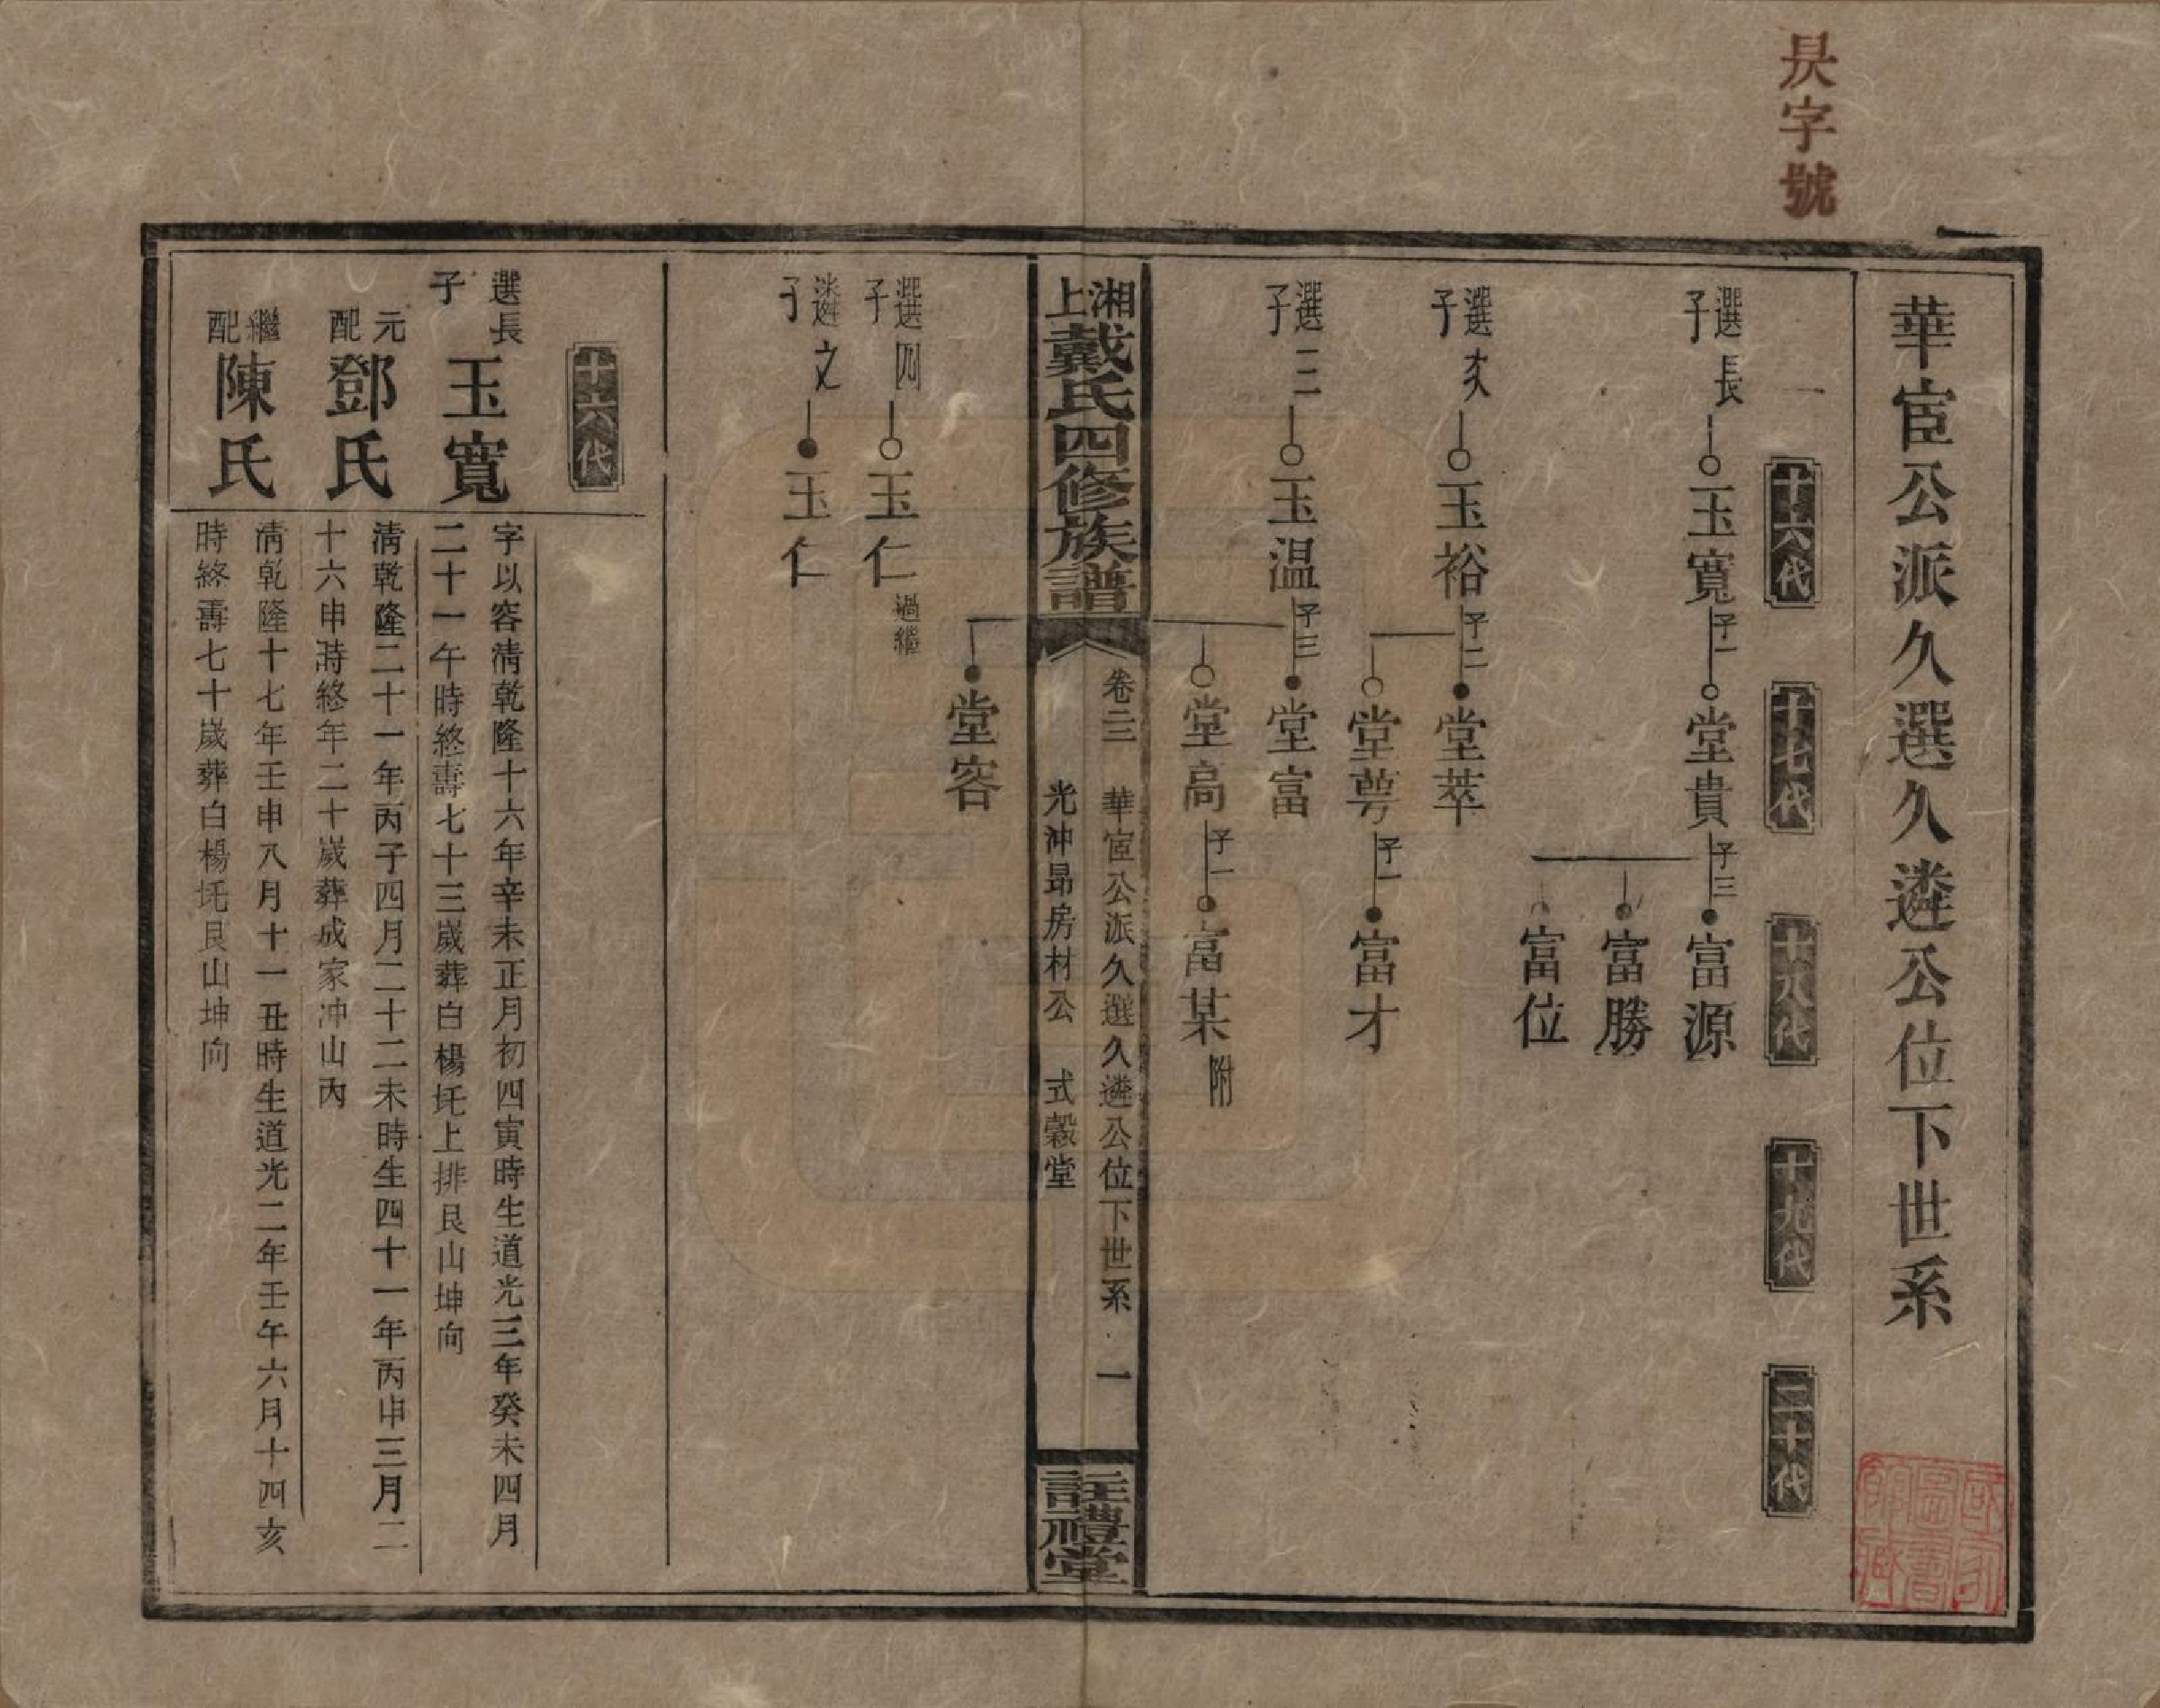 昃字號
華宦公派久選久遴公位下世系
十六代
十七代
十八代
十九代
二十代
選長子
玉寬
子一
堂貴
子三
富源
富勝
富位
選次子
玉裕
子二
堂萃
堂萼
子一
富才
選三子
玉温
子三
堂富
堂高
子一
富某
附
湘上戴氏四修族譜
卷二
華宦公派久選久遴公位下世系
一
光沖昂房材公
式穀堂
註禮堂
堂容
選四子
玉仁
過繼
遴之子
玉仁
十六代
選長子
玉寬
字以容清乾隆十六年辛未正月初四寅時生道光三年癸未四月
二十一午時終壽七十三歲葬白楊圫上排艮山坤向
元配
鄧氏
清乾隆二十一年丙子四月二十二未時生四十一年丙申三月二
十六申時終年二十歲葬成家沖山內
繼配
陳氏
清乾隆十七年壬申八月十一丑時生道光二年壬午六月十四亥
時終壽七十歲葬白楊圫艮山坤向